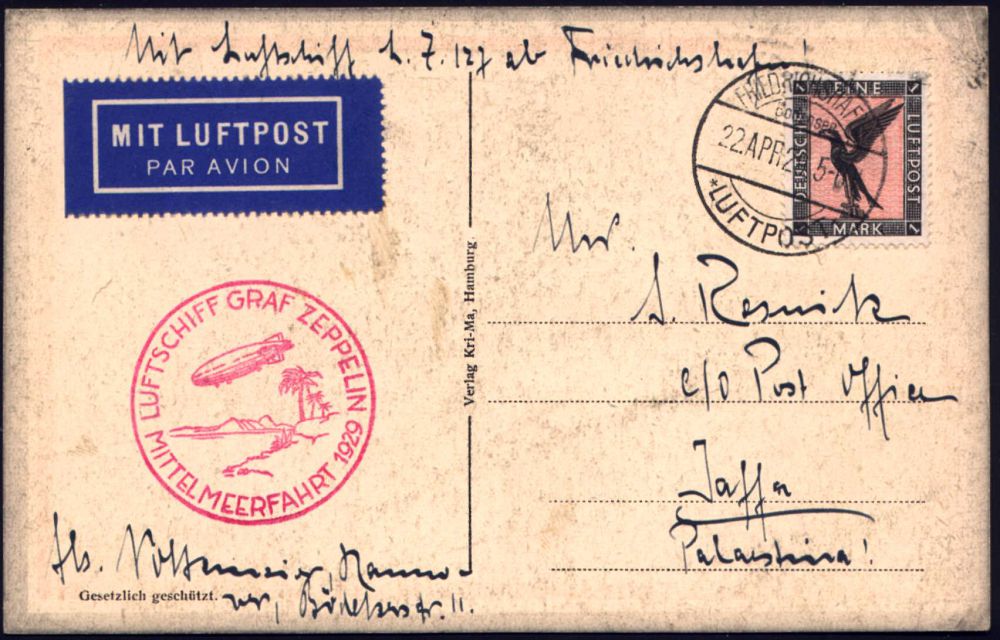 Mit Luftschiff L. Z. 127 ab Friedrichshafen!
MIT LUFTPOST
PAR AVION
FRIEDRICHSHAFEN
Bodensee
22.APR.2
5-6
*LUFTPOST
EINE
DEUTSCHE
LUFTPOST
1 MARK 1
LUFTSCHIFF GRAF ZEPPELIN
MITTELMEERFAHRT 1929
Verlag Kri-Ma, Hamburg.
Mr.
S. Resnick
c/o Post Office
Jaffa
Palaestina!
Abs. Hanno-
Gesetzlich geschützt.
ver, Bödekerstr. 11.